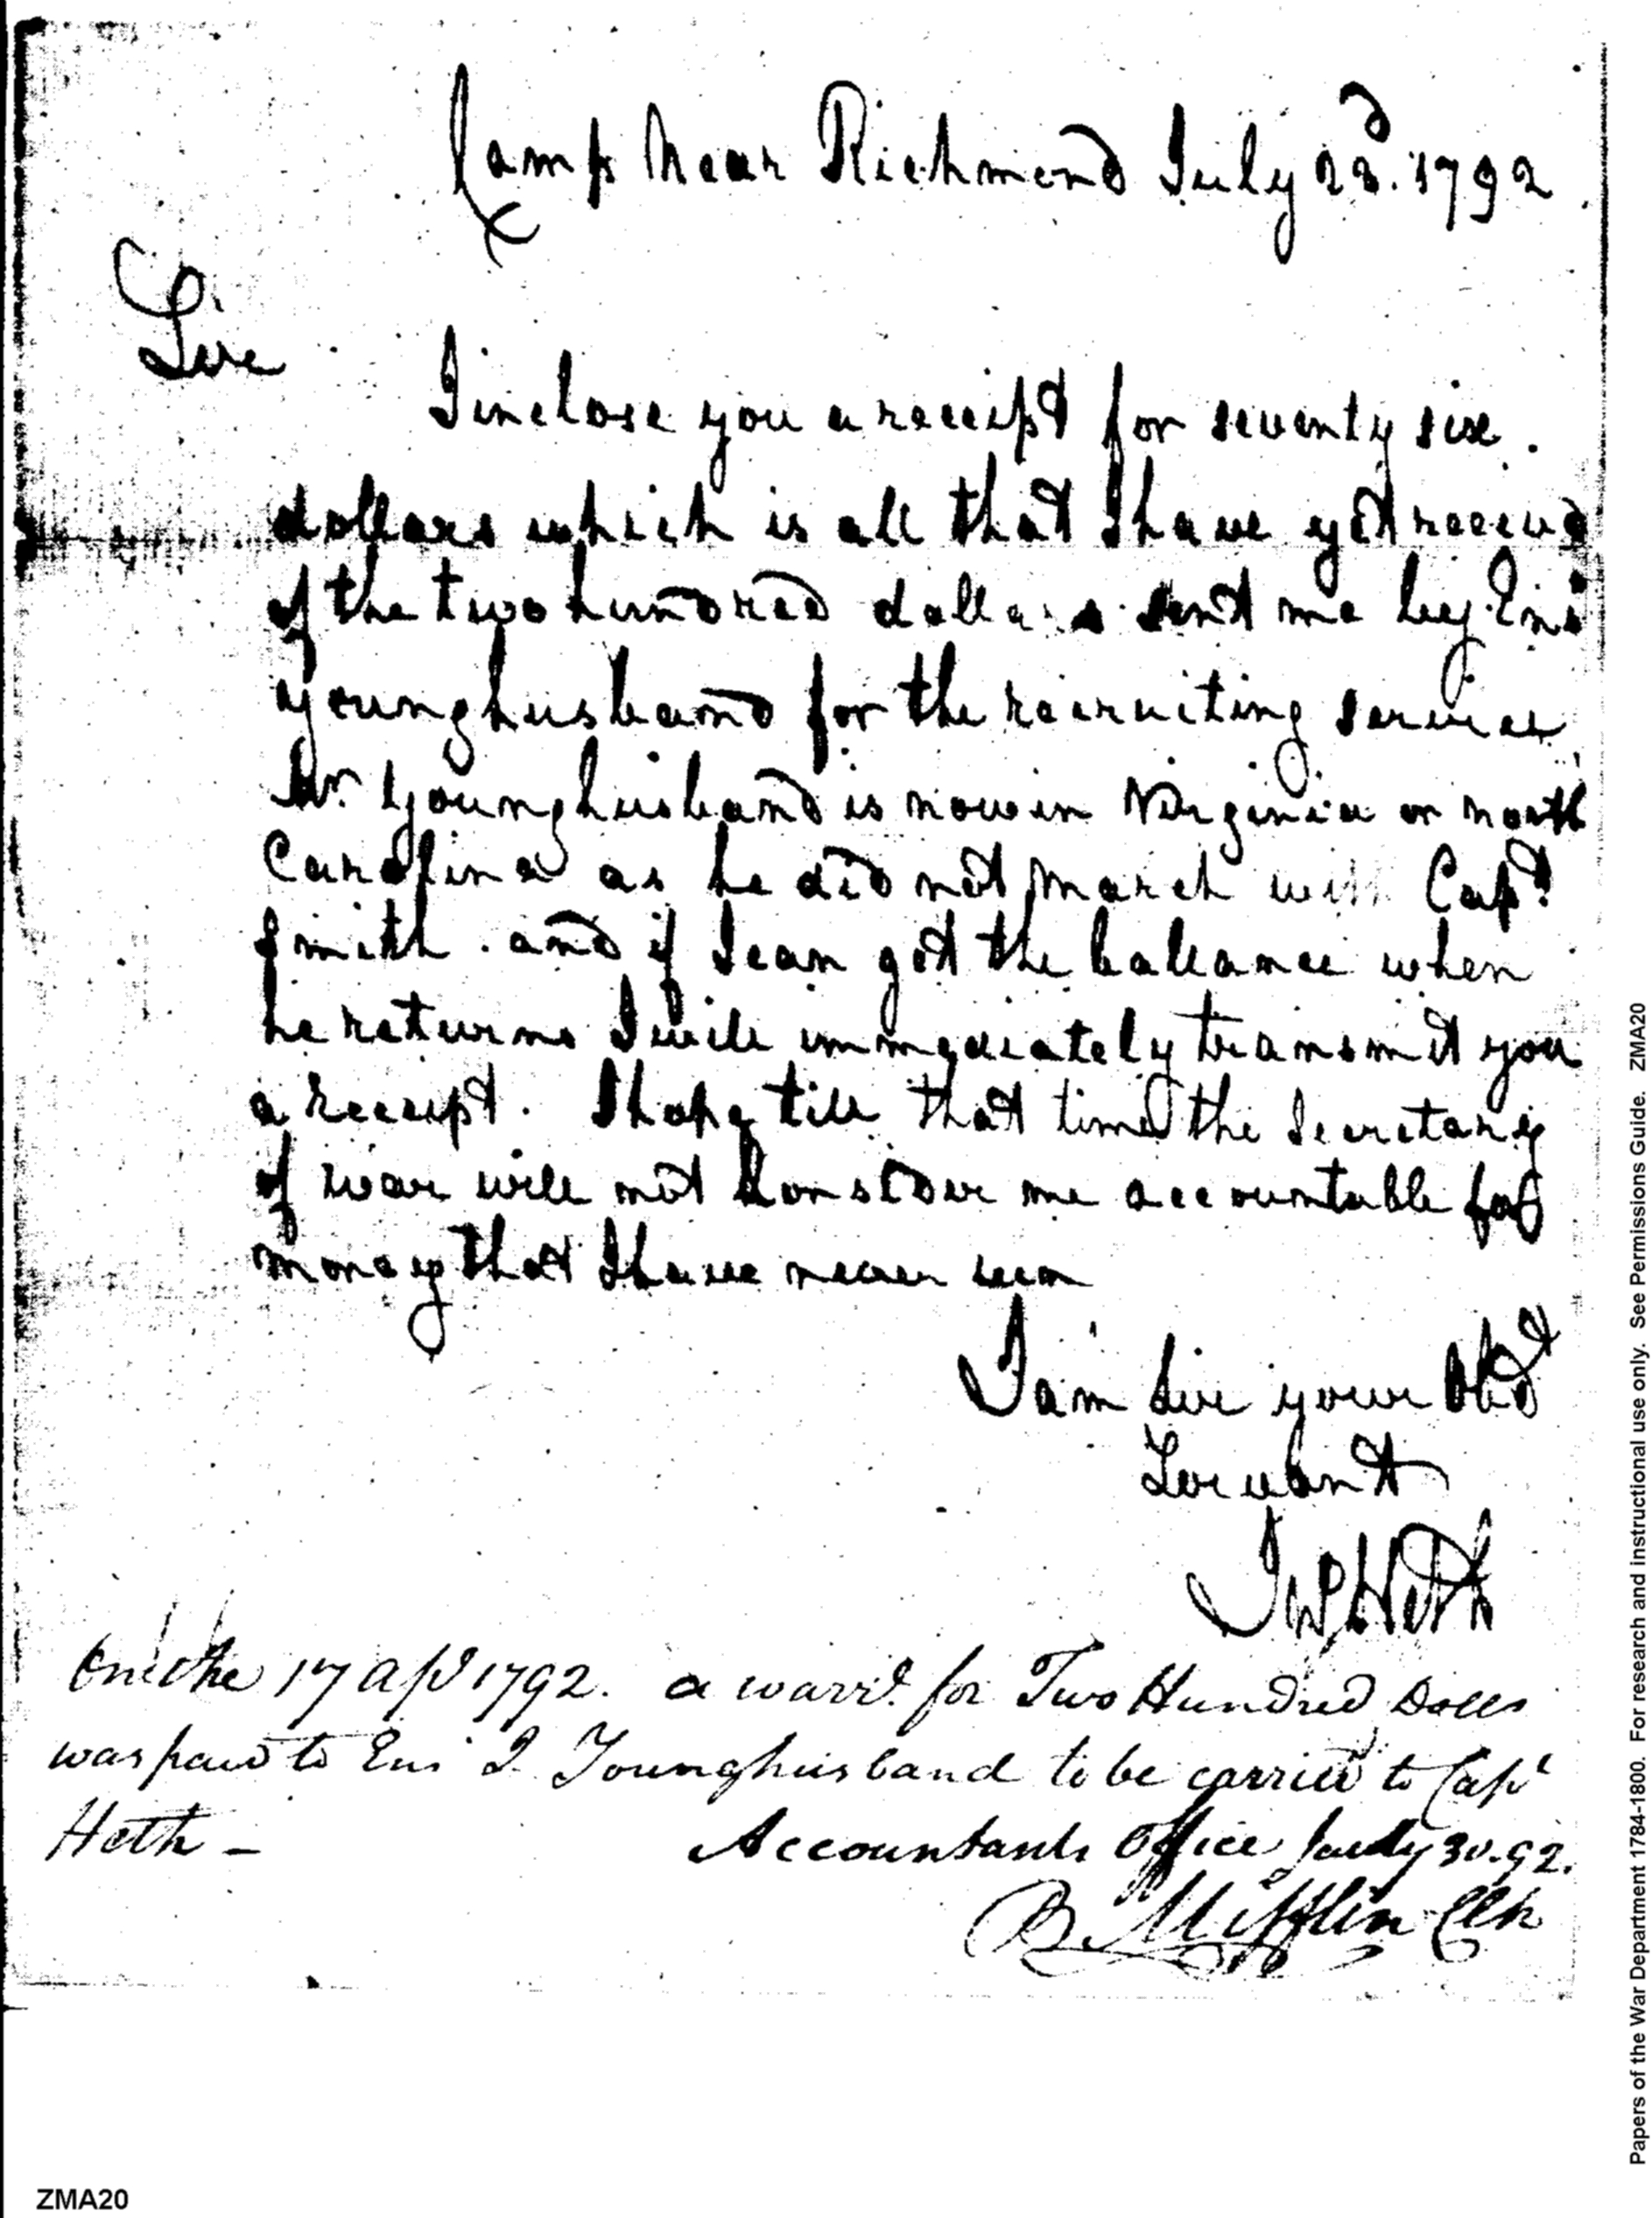 Camp Near Richmond July 23.d 1792
Sir
I inclose you a receipt for seventy six
dollars which is all that I have yet receivd
of the two hundred dollars sent me by Ens
Younghusband for the recruiting service
Mr. Younghusband is now in Virginia or north
Carolina as he did not march with Capt.
Smith. and if I can get the ballance when
he returns I will immediately transmit you
a receipt. I hope till that time the Secretary
of war will not konsider me accountable for
money that I have never seen
I am Sir your Obdt
Servant
Heth
On the 17 Apl 1792. a warrt. for Two Hundred Dolls
was paid to Ens J. Younghusband to be carried to Capt
Heth —
Accountants Office July 30. 92.
B. Mifflin Clk
Papers of the War Department 1784-1800. For research and instructional use only. See Permissions Guide. ZMA20
ZMA20